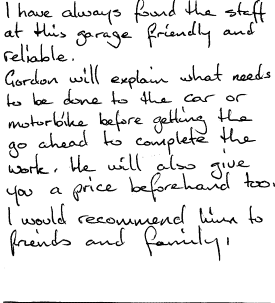 I have always found the staff
at this garage friendly and
reliable.
Gordon will explain what needs
to be done to the car or
motorbike before getting the
go ahead to complete the
work. He will also give
you a price beforehand too.
I would recommend him to
friends and family.